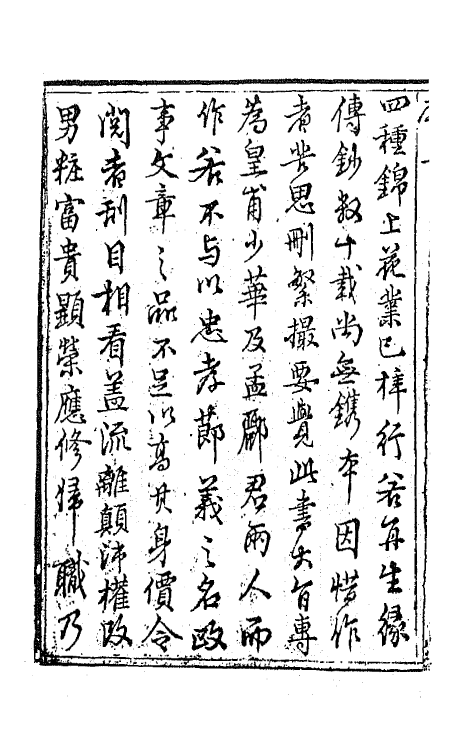 四種錦上花業已梓行若再生緣
傳鈔數十載尚無鐫本因惜作
者苦思刪繁撮要覺此書大旨專
為皇甫少華及孟酈君兩人而
作若不与以忠孝節義之名政
事文章之品不足以高其身價令
閱者刮目相看盖流離顛沛權改
男粧富貴顯榮應修婦職乃